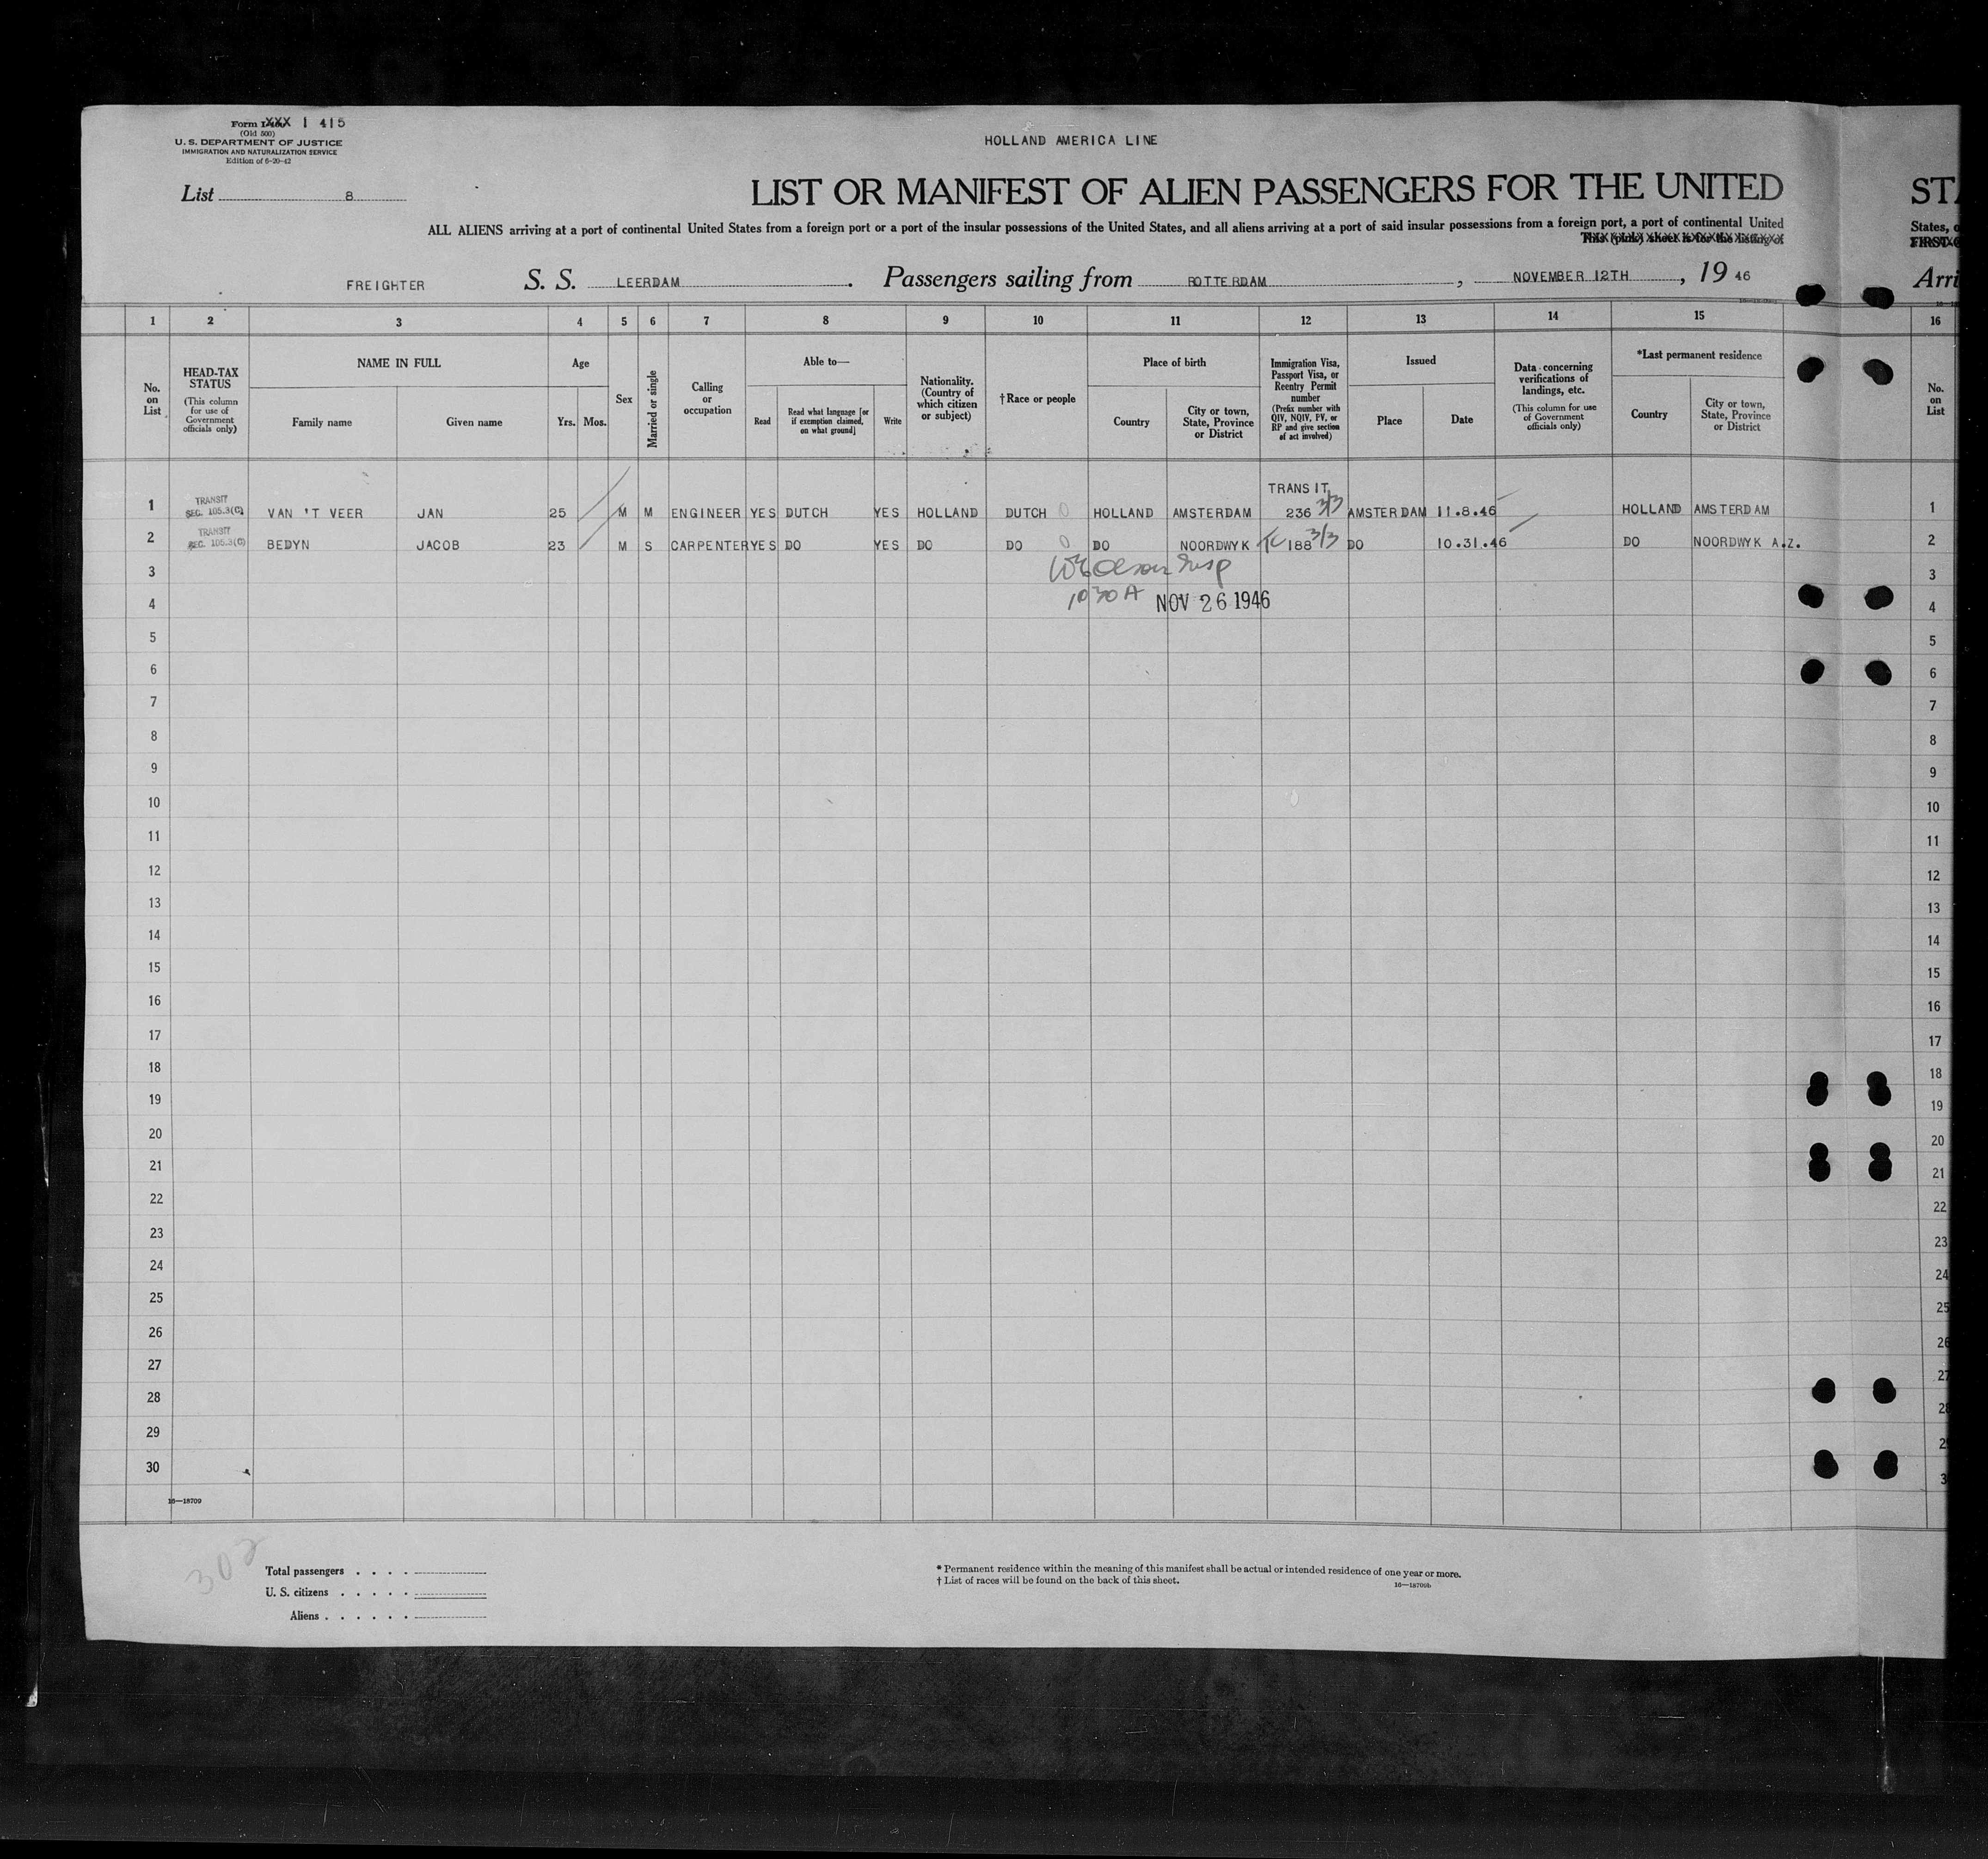 Form I XXX I 415
(Old 500)
U. S. DEPARTMENT OF JUSTICE
IMMIGRATION AND NATURALIZATION SERVICE
Edition of 6-20-42
HOLLAND AMERICA LINE
List 8
LIST OR MANIFEST OF ALIEN PASSENGERS FOR THE UNITED
STA
ALL ALIENS arriving at a port of continental United States from a foreign port or a port of the insular possessions of the United States, and all aliens arriving at a port of said insular possessions from a foreign port, a port of continental United
States, o
This (pink) sheet is for the listing of
FIRST-C
FREIGHTER S. S. LEERDAM. Passengers sailing from ROTTERDAM, NOVEMBER 12TH, 19 46
Arri
1 2 3 4 5 6 7 8 9 10 11 12 13 14 15 16
No. on List
HEAD-TAX STATUS (This column for use of Government officials only)
NAME IN FULL
Family name Given name
Age
Yrs. Mos.
Sex
Married or single
Calling or occupation
Able to—
Read Read what language [or if exemption claimed, on what ground] Write
Nationality. (Country of which citizen or subject)
†Race or people
Place of birth
Country City or town, State, Province or District
Immigration Visa, Passport Visa, or Reentry Permit number (Prefix number with QIV, NQIV, PV, or RP and give section of act involved)
Issued
Place Date
Data concerning verifications of landings, etc. (This column for use of Government officials only)
*Last permanent residence
Country City or town, State, Province or District
No. on List
TRANSIT
1 TRANSIT SEC. 105.3(C) VAN 'T VEER JAN 25 M M ENGINEER YES DUTCH YES HOLLAND DUTCH HOLLAND AMSTERDAM 236 3/3 AMSTERDAM 11.8.46 HOLLAND AMSTERDAM 1
2 TRANSIT SEC. 105.3(C) BEDYN JACOB 23 M S CARPENTER YES DO YES DO DO DO NOORDWYK 188 3/3 DO 10.31.46 DO NOORDWYK A.Z. 2
3 Insp 3
4 1030 A NOV 26 1946 4
5 5
6 6
7 7
8 8
9 9
10 10
11 11
12 12
13 13
14 14
15 15
16 16
17 17
18 18
19 19
20 20
21 21
22 22
23 23
24 24
25 25
26 26
27 27
28 28
29 2
30 3
16—18709
302
Total passengers . . . .
U. S. citizens . . . . .
Aliens . . . . . .
* Permanent residence within the meaning of this manifest shall be actual or intended residence of one year or more.
† List of races will be found on the back of this sheet.
16—18709b